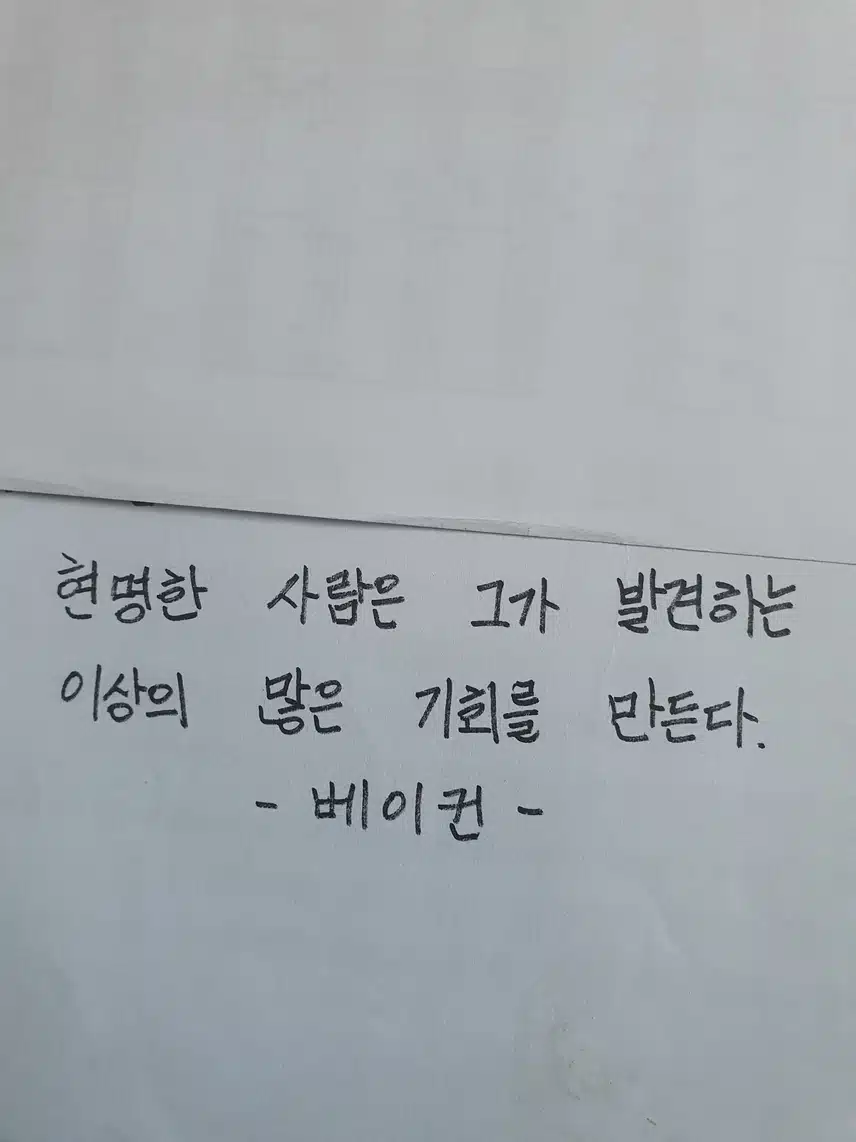 현명한 사람은 그가 발견하는
이상의 많은 기회를 만든다.
- 베이컨 -